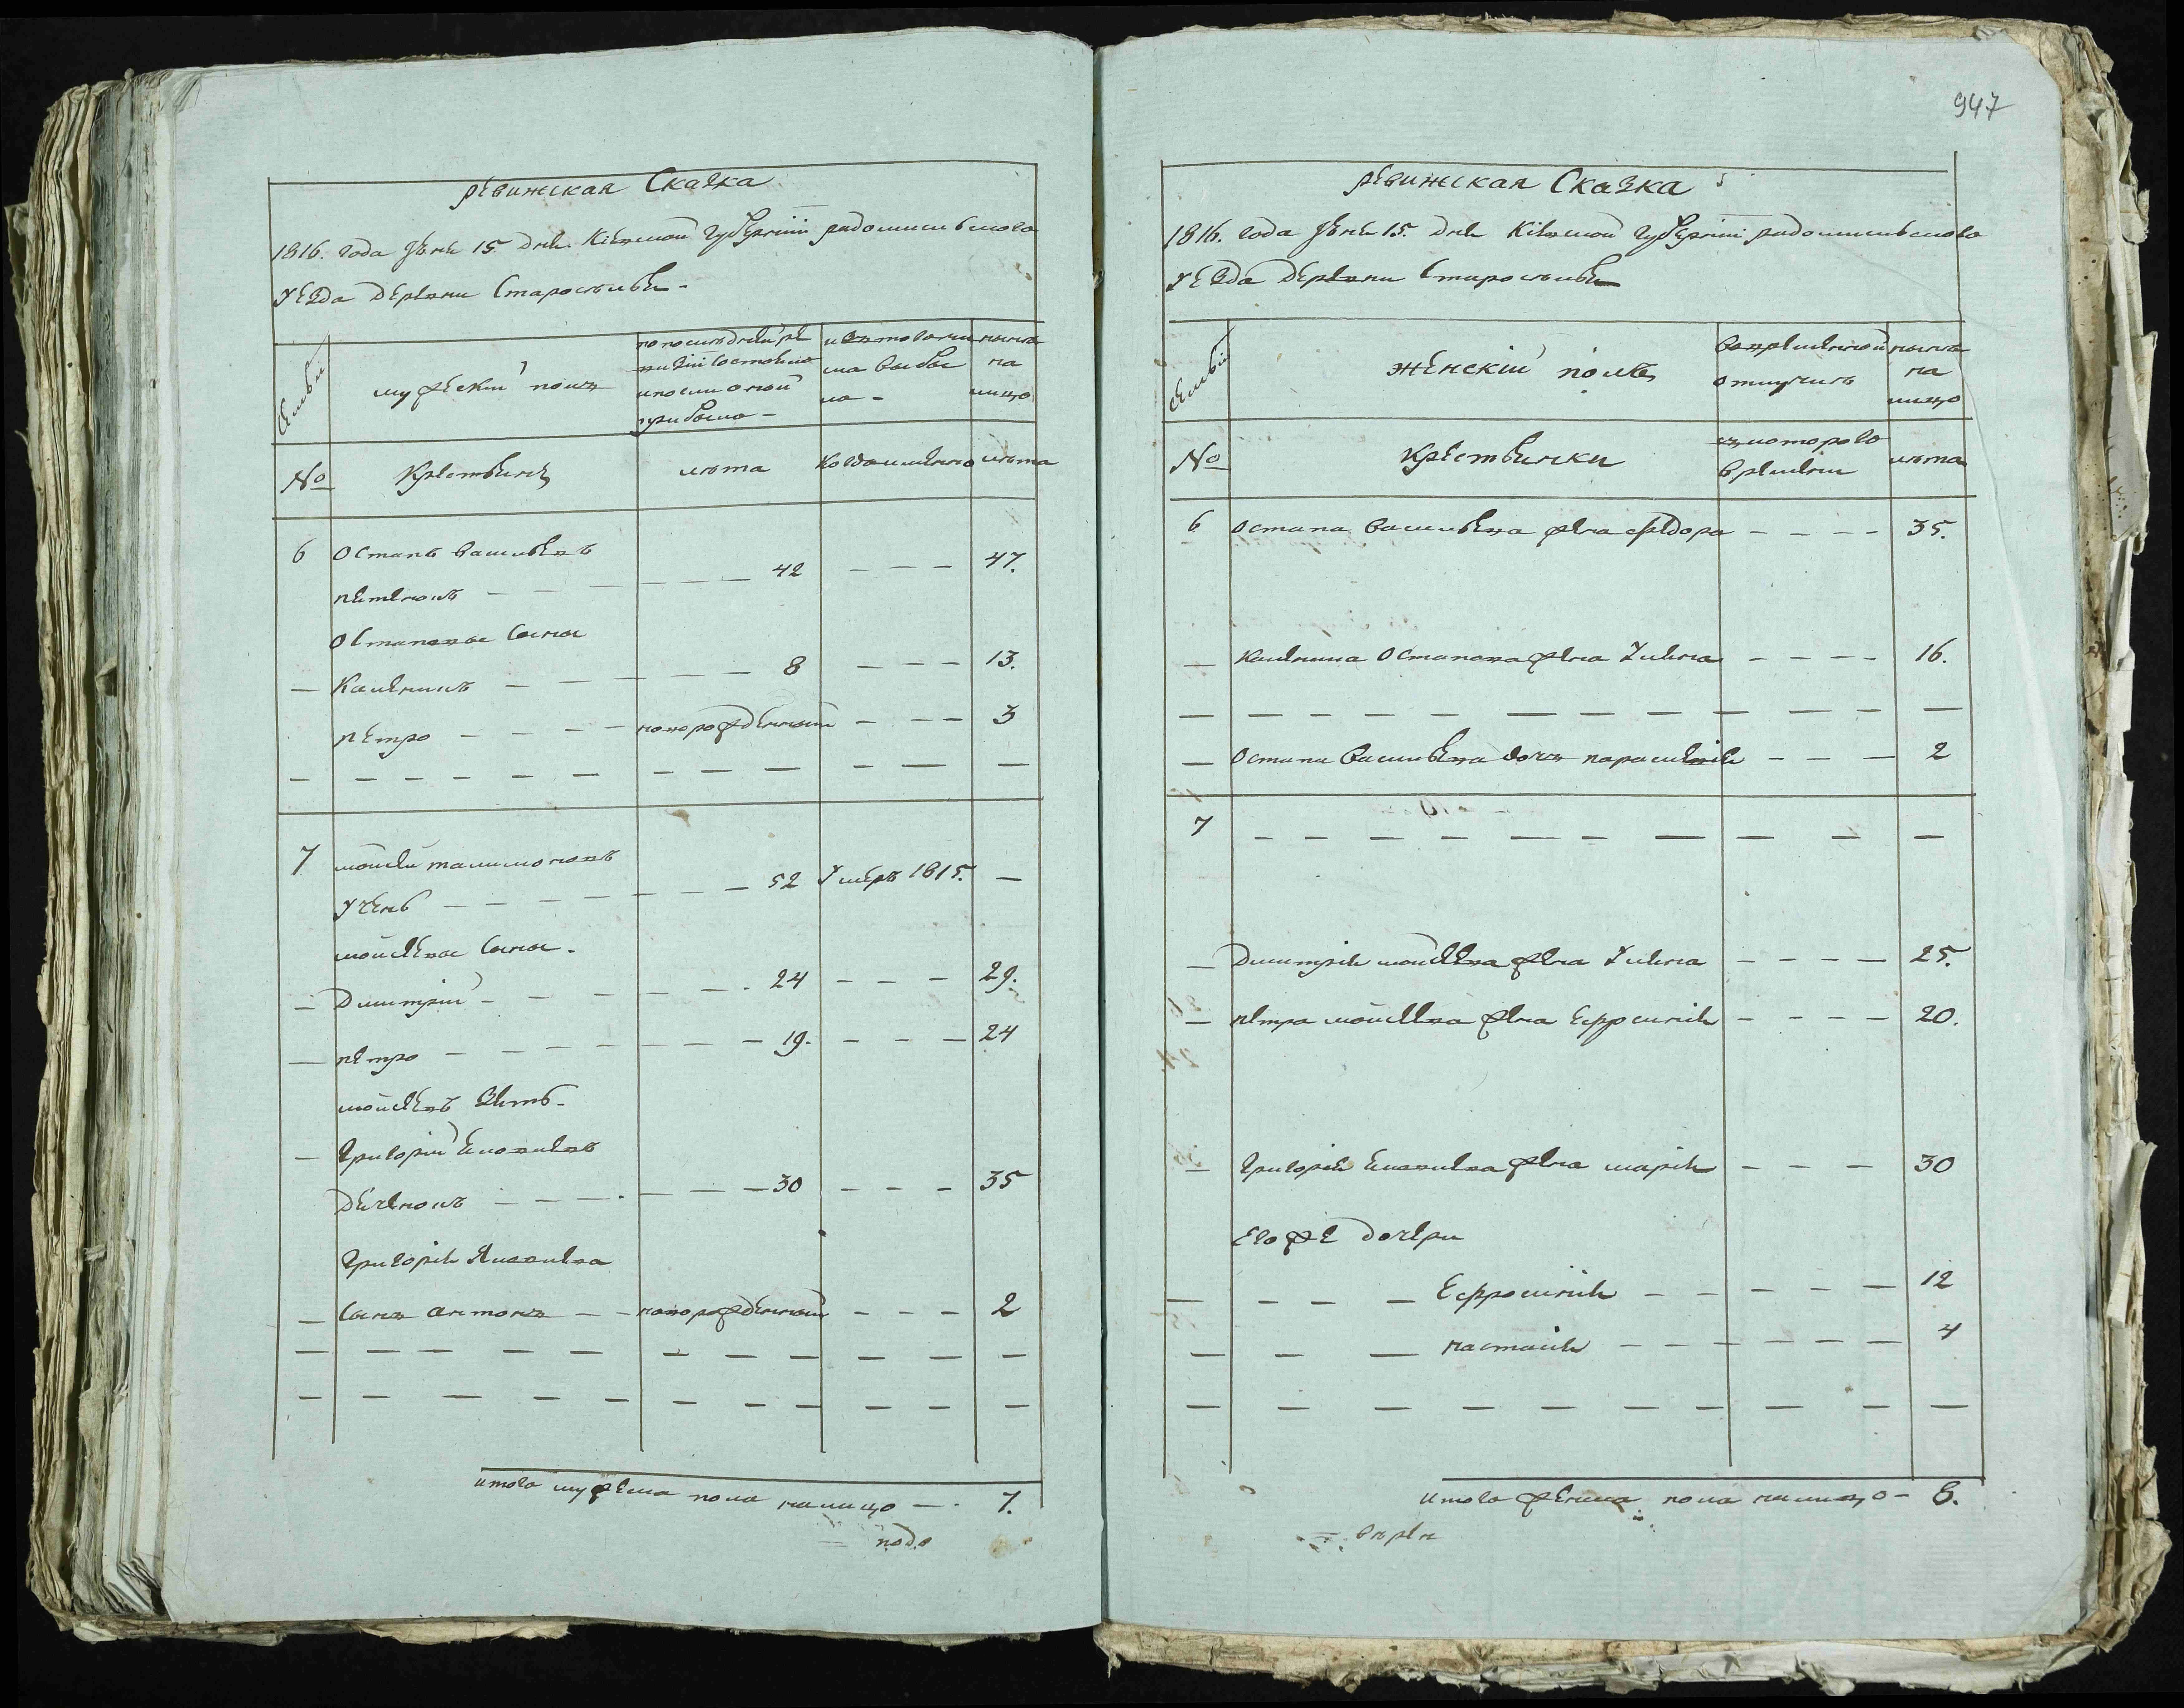 947
ревижская Сказка
1816. года Июня 15 дня Кіевской Губерніи радомисьлского
уезда деревни Старосельи
Семьи
мужескій полъ
по последней ре
визіи состояло
и после оной
прибыло
изъ того числа
выбы
ло
ныне
на
лицо
№
Крестьянъ
лета
Когда именно
лета
6 Остапъ Васильевъ
петенокъ 42 47.
Остаповы Сыны
Калѣникъ 8 13.
петро новорожденный 3
7 мойсей талимоновъ
Учень 52 Умеръ 1815.
мойсеевы Сыны
Димитрій 24 29.
петро 19. 24
мойсеевъ Зять
Григорій Яковлевъ
Деченокъ 30 35
Григорія Яковлева
Сынъ антонъ новорожденный 2
итого мужеска пола налицо 7.
подо
ревижская Сказка
1816. года Июня 15. дня Кіевской Губерніи радомисьлского
уезда деревни Старосельи
Семьи
женскій полъ
во временной
отлучке
ныне
на
лицо
№
Крестьянки
съ которого
времени
лета
6 остапа Васильева жена федора 35.
Калѣника Остапова жена Улина 16.
Остапа Васильева дочь параскевія 2
7
Димитрія мойсеева жена Улина 25.
петра мойсеева жена Ефросинія 20.
Григорія Яковлева жена марія 30
его же дочери
Ефросинія 12
настасія 4
Итого женска пола налицо 8.
верен